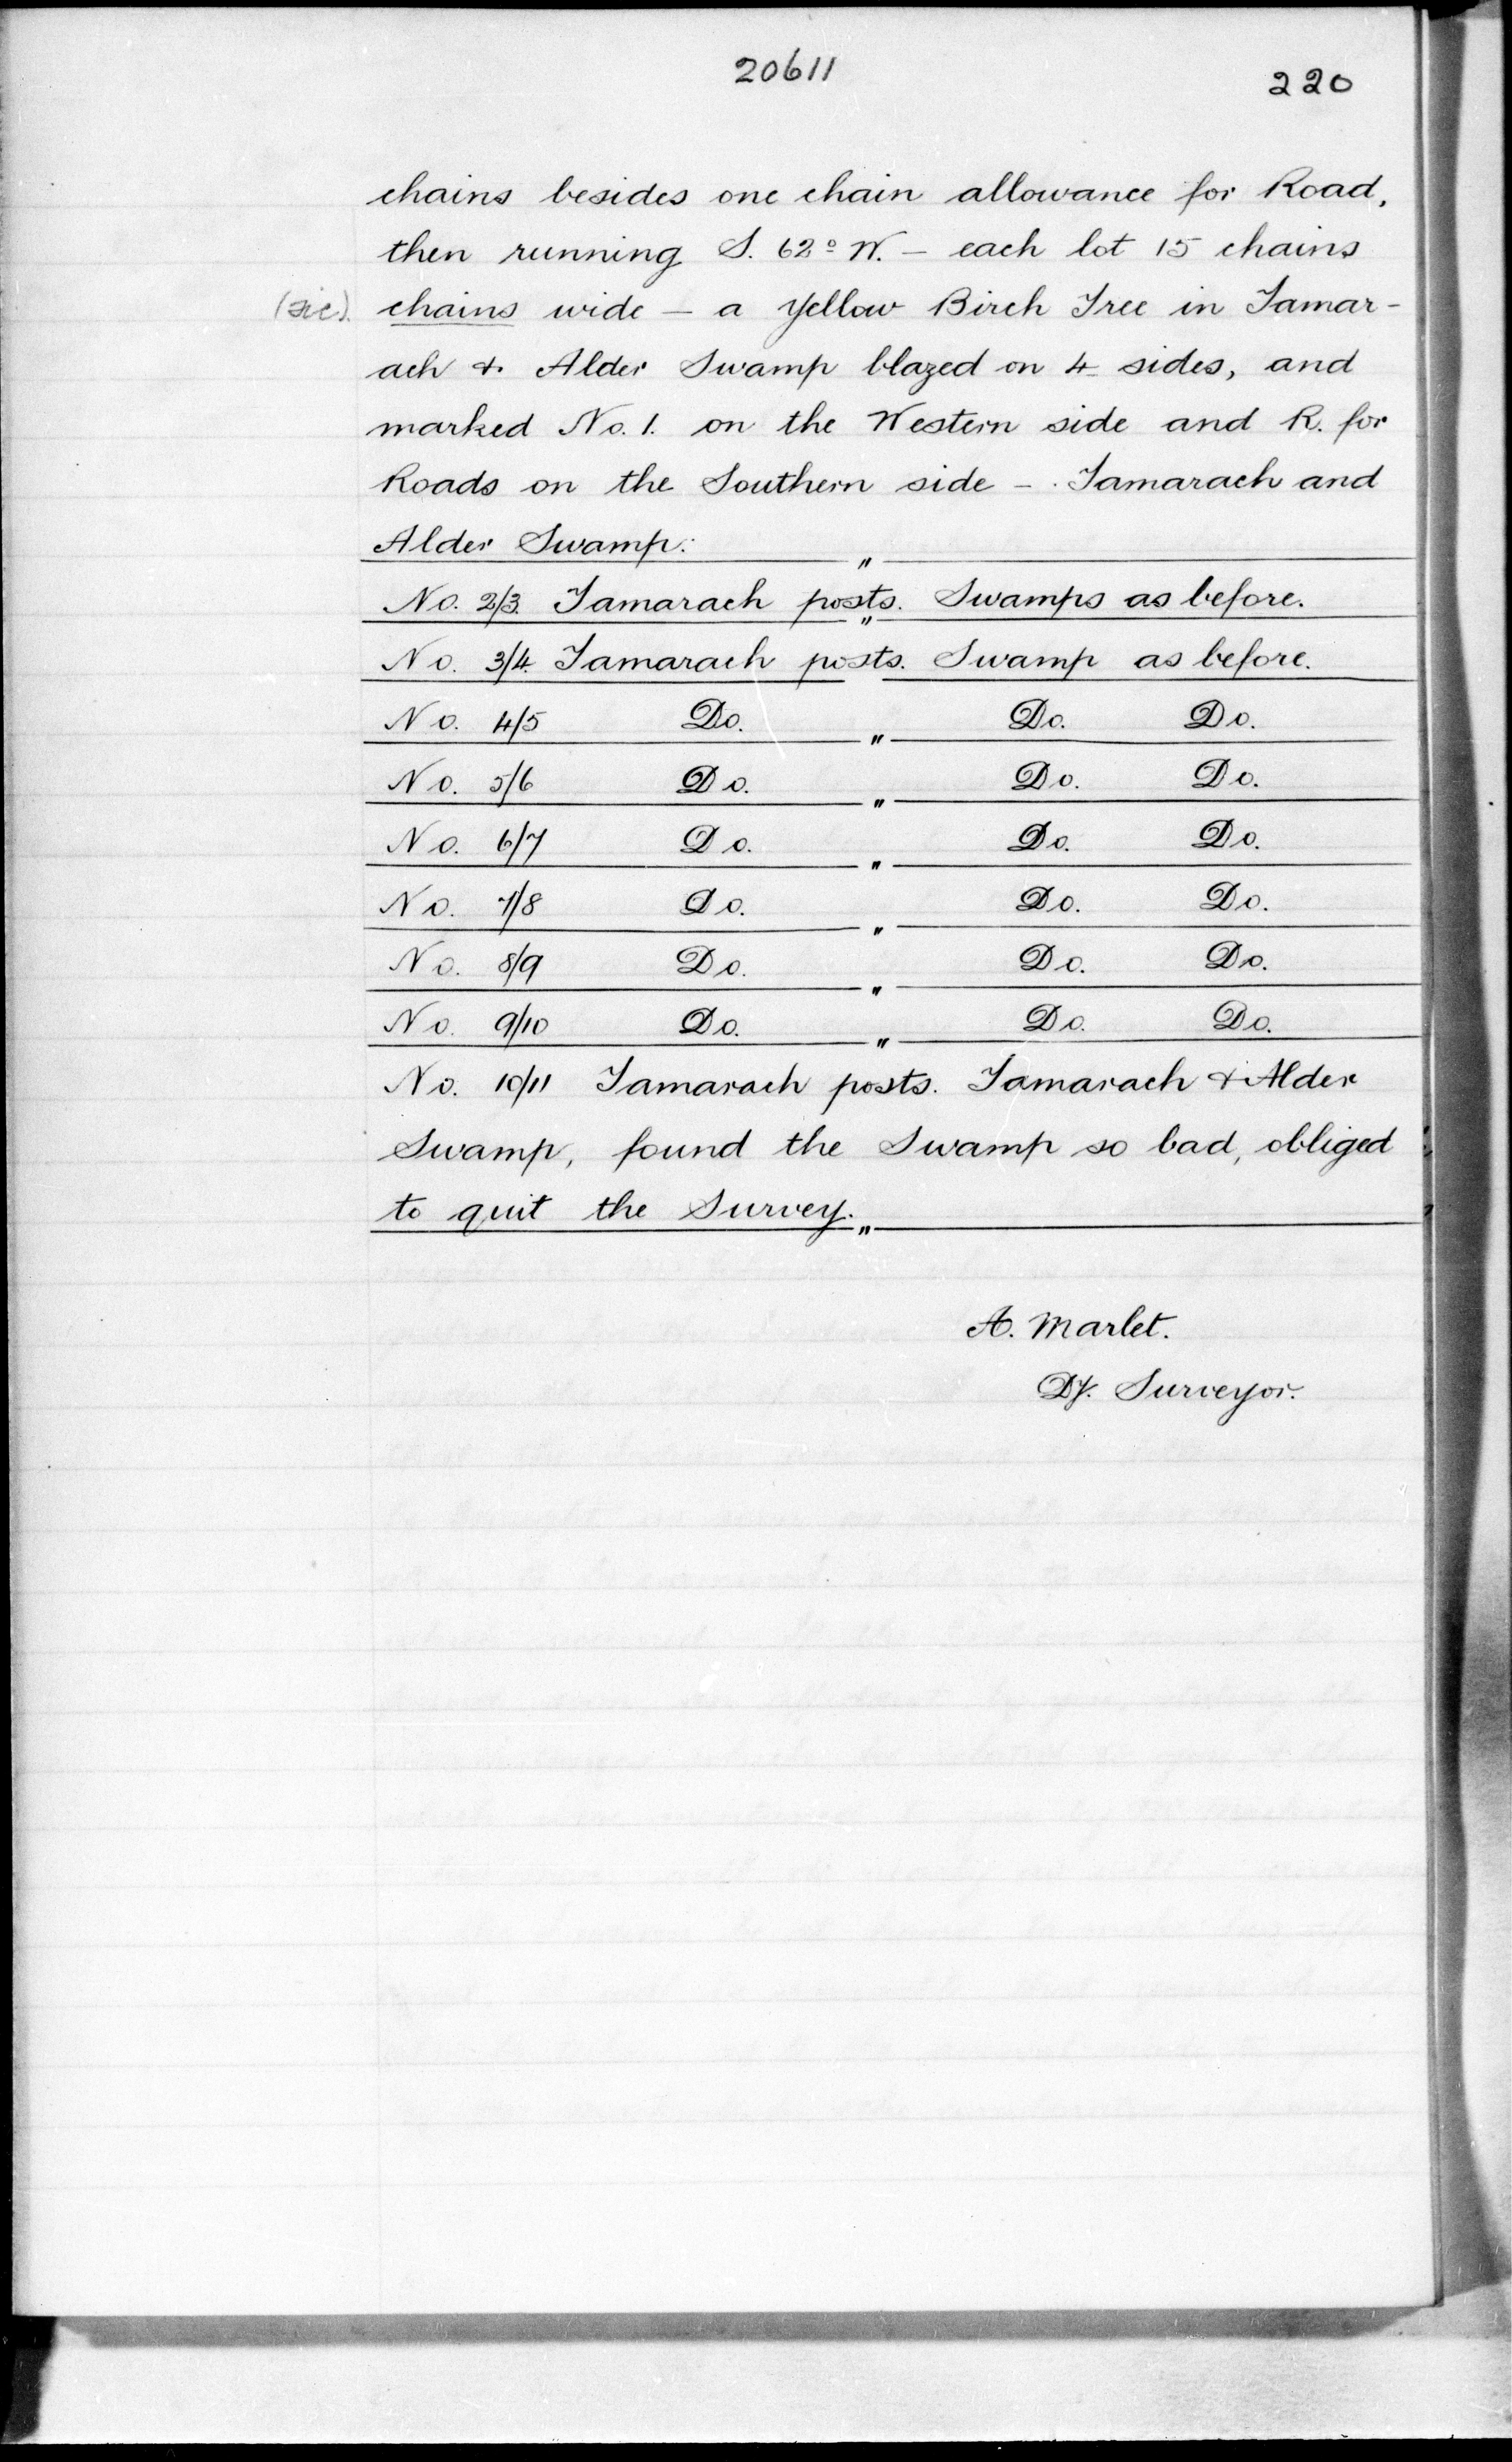 20611
220
chains besides one chain allowance for Road,
then running S. 62° W. – each lot 15 chains
(sic). chains wide – a Yellow Birch Tree in Tamar-
ach & Alder Swamp blazed on 4 sides, and
marked No. 1. on the Western side and R. for
Roads on the Southern side – Tamarach and
Alder Swamp: "
No. 2/3. Tamarach posts. Swamps as before.
"
No. 3/4. Tamarach posts. Swamp as before.
"
No. 4/5 Do. " Do. Do.
No. 5/6 Do. " Do. Do.
No. 6/7 Do. " Do. Do.
No. 7/8 Do. " Do. Do.
No. 8/9 Do. " Do. Do.
No. 9/10 Do. " Do. Do.
No. 10/11 Tamarach posts. Tamarach & Alder
Swamp, found the Swamp so bad, obliged
to quit the Survey. "
A. Marlet.
Dy. Surveyor.